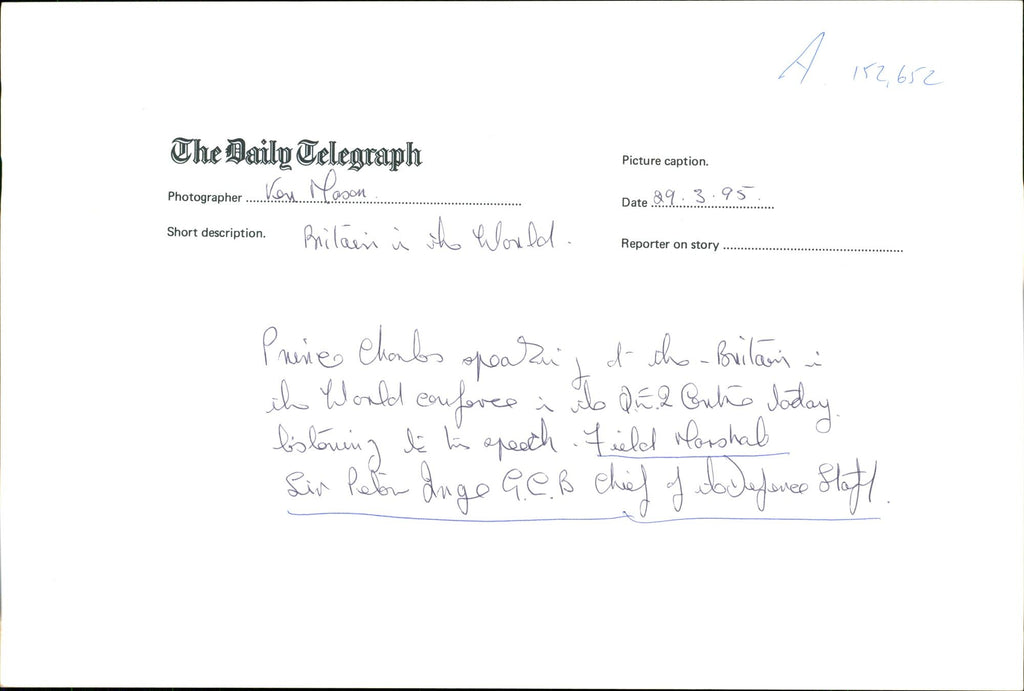 A 152,652
The Daily Telegraph
Picture caption.
Photographer Ken Mason.
Date 29.3.95.
Short description. Britain in the World.
Reporter on story
Prince Charles speaking at the Britain in
the World conference in the Q.E.2 Centre today.
listening to his speech. Field Marshal
Sir Peter Inge G.C.B Chief of the Defence Staff.